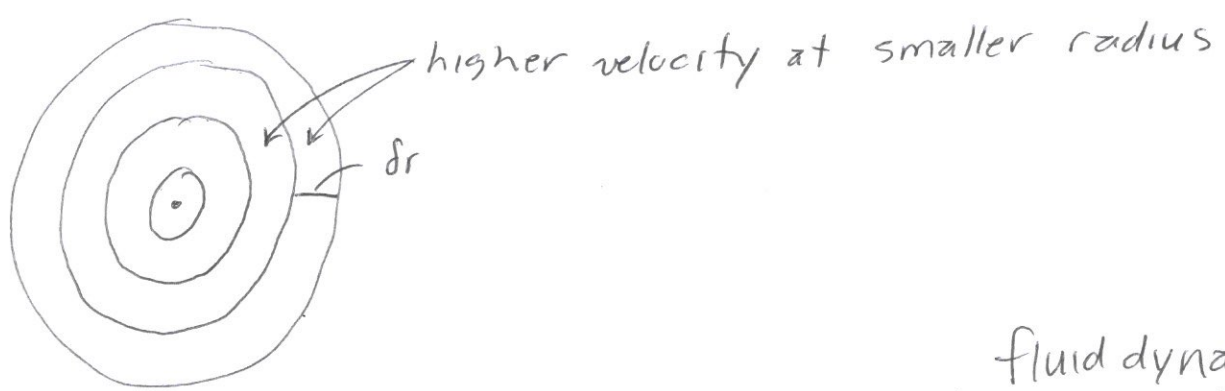 higher velocity at smaller radius
δr
fluid dyna